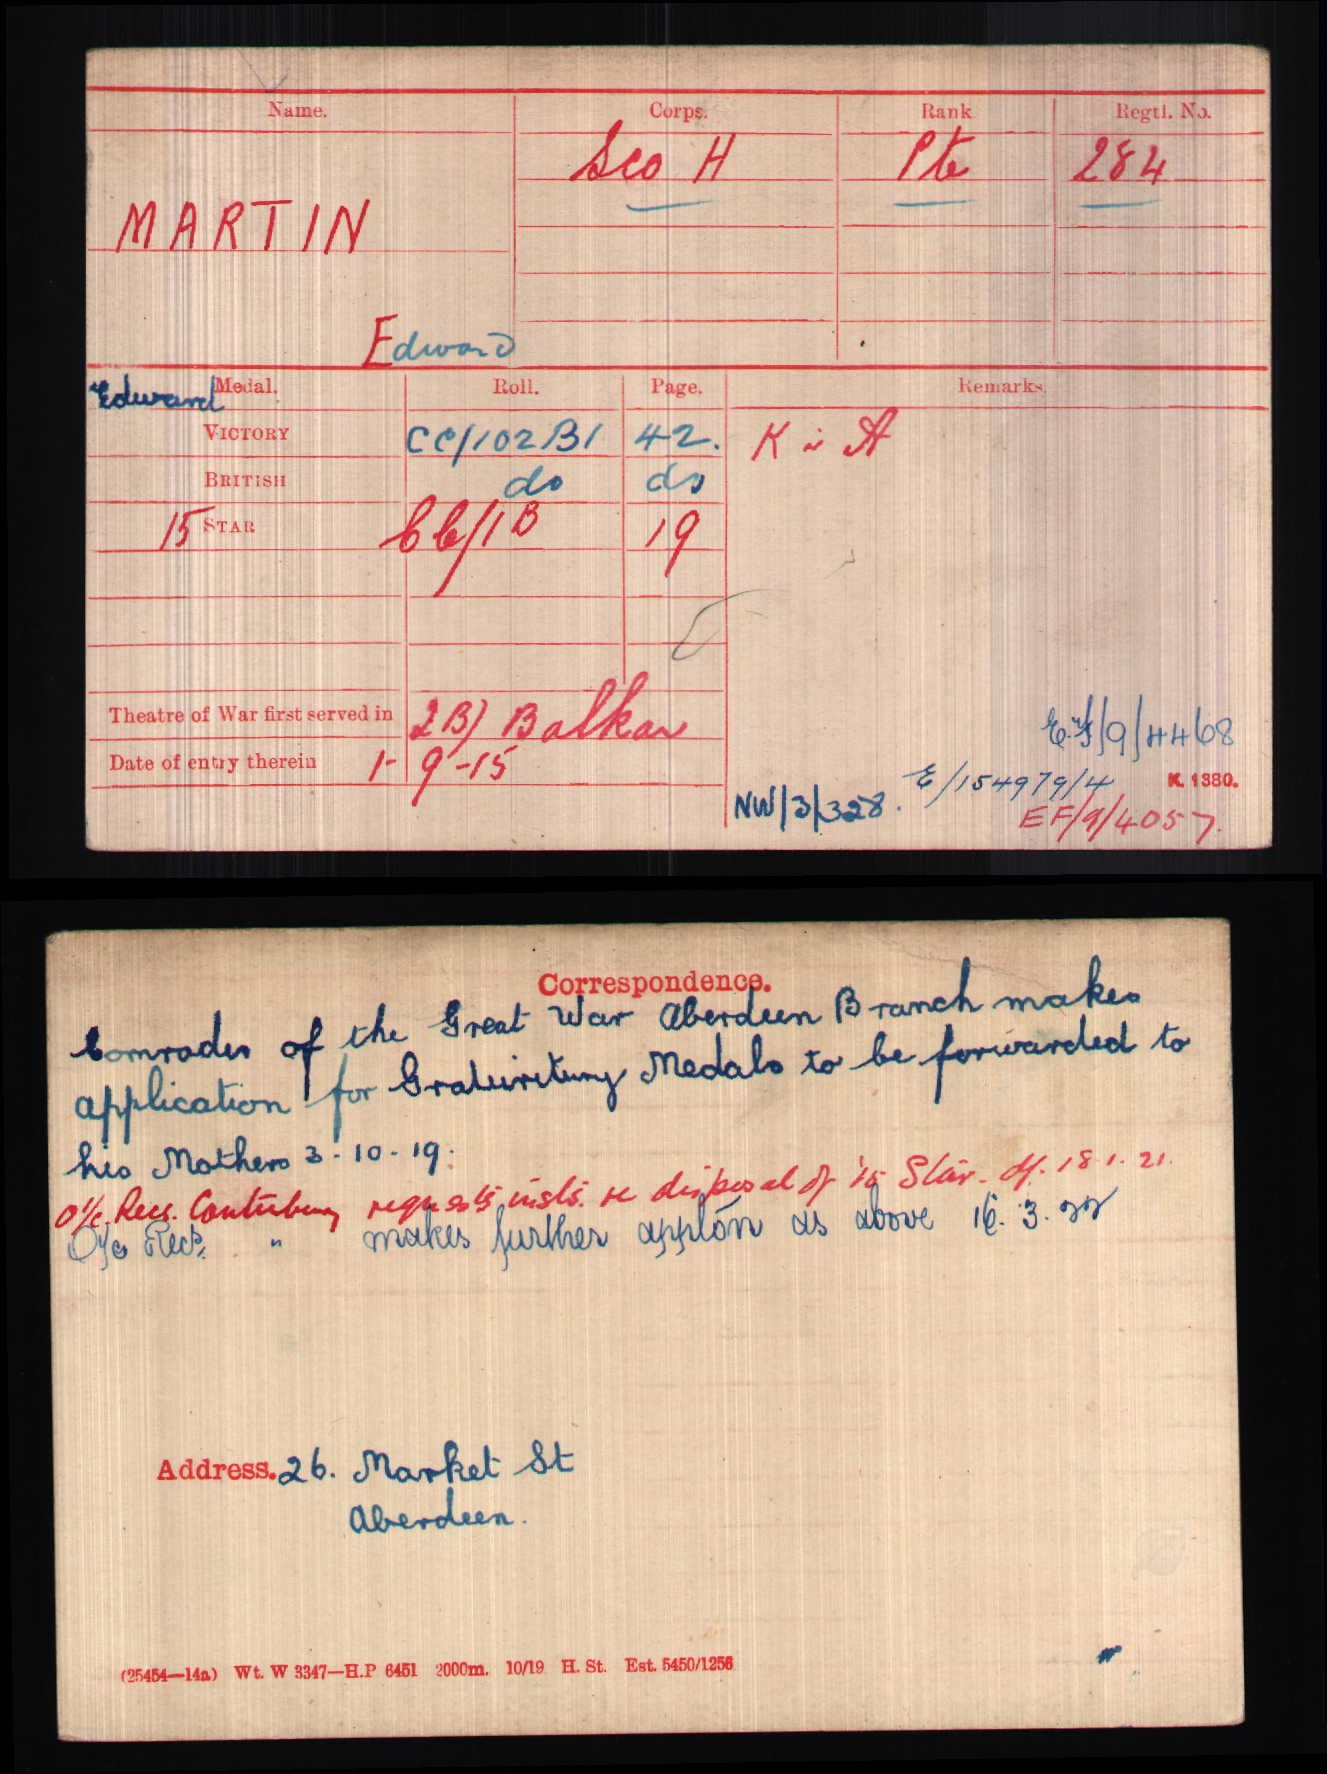 Name. Corps. Rank Regtl. No.
Sco H Pte 284
MARTIN
Edward
Edward Medal. Roll. Page. Remarks.
VICTORY CC/102B1 42. K in A
BRITISH do do
15 STAR CC/1B 19
Theatre of War first served in 2B) Balkan
Date of entry therein 1-9-15
EF/9/4468
E/154979/4 K. 1380.
NW/3/328.
EF/9/4057.
Correspondence.
Comrades of the Great War Aberdeen Branch makes
application for Medals to be forwarded to
his Mothers 3-10-19.
O i/c Recs. Canterbury requests insts. re disposal of '15 Star. df. 18.1.21.
O i/c Recs. " makes further appltn as above 16.3.22
Address. 26. Market St
Aberdeen.
(25454—14a) Wt. W 3347—H.P 6451 2000m. 10/19 H. St. Est. 5450/1256